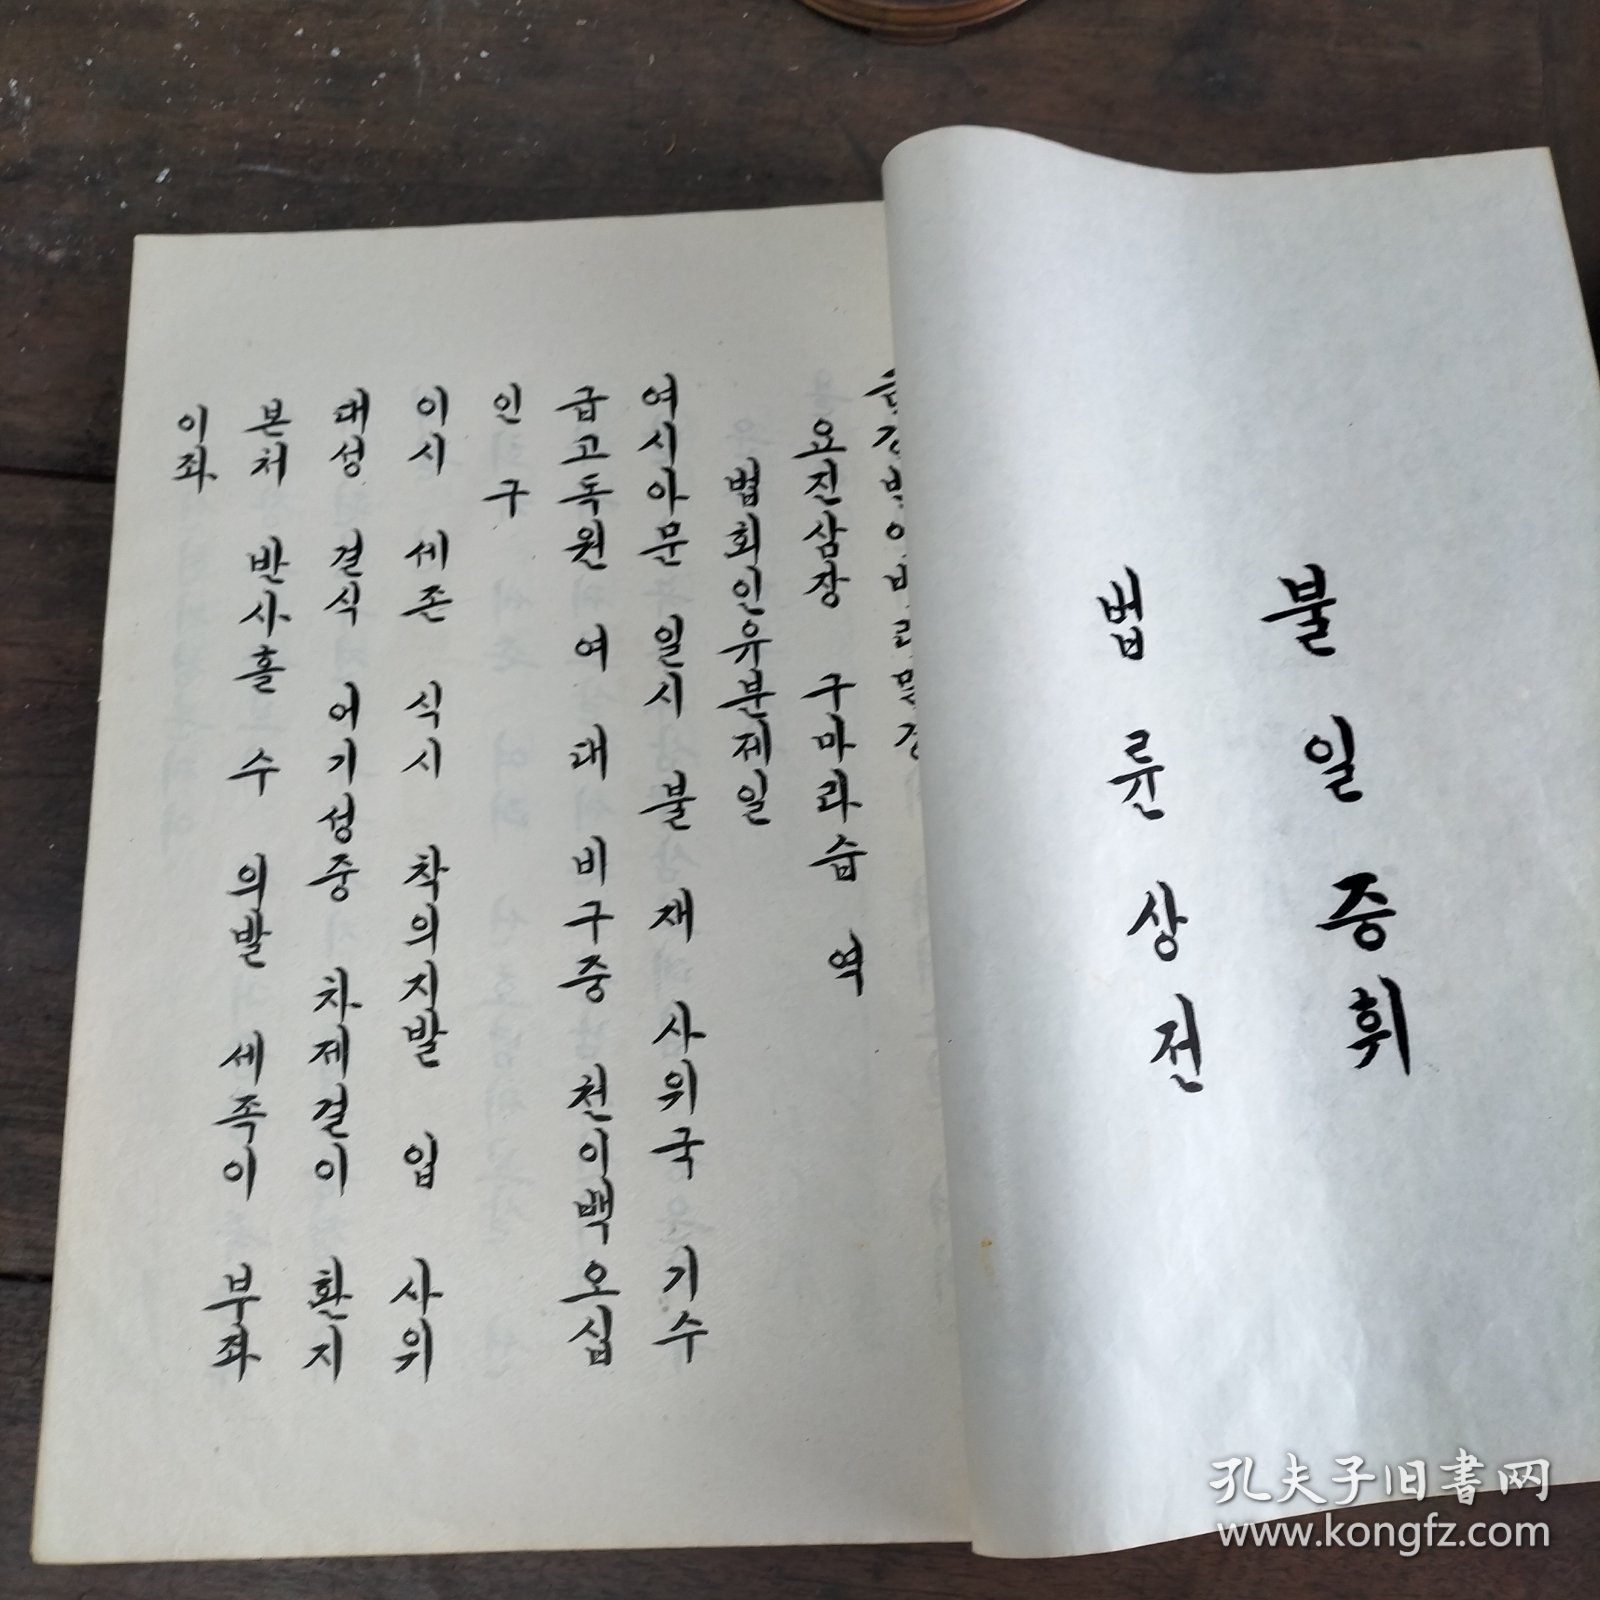 불일증휘
법륜상전
요진삼장 구마라습 역
법회인유분제일
여시아문 일시 불 재 사위국 기수
급고독원 여 대 비구중 천이백오십
인 구
이시 세존 식시 착의지발 입 사위
대성 걸식 어기성중 차제걸이 환지
본처 반사흘 수 의발 세족이 부좌
이좌
孔夫子旧书网
www.kongfz.com